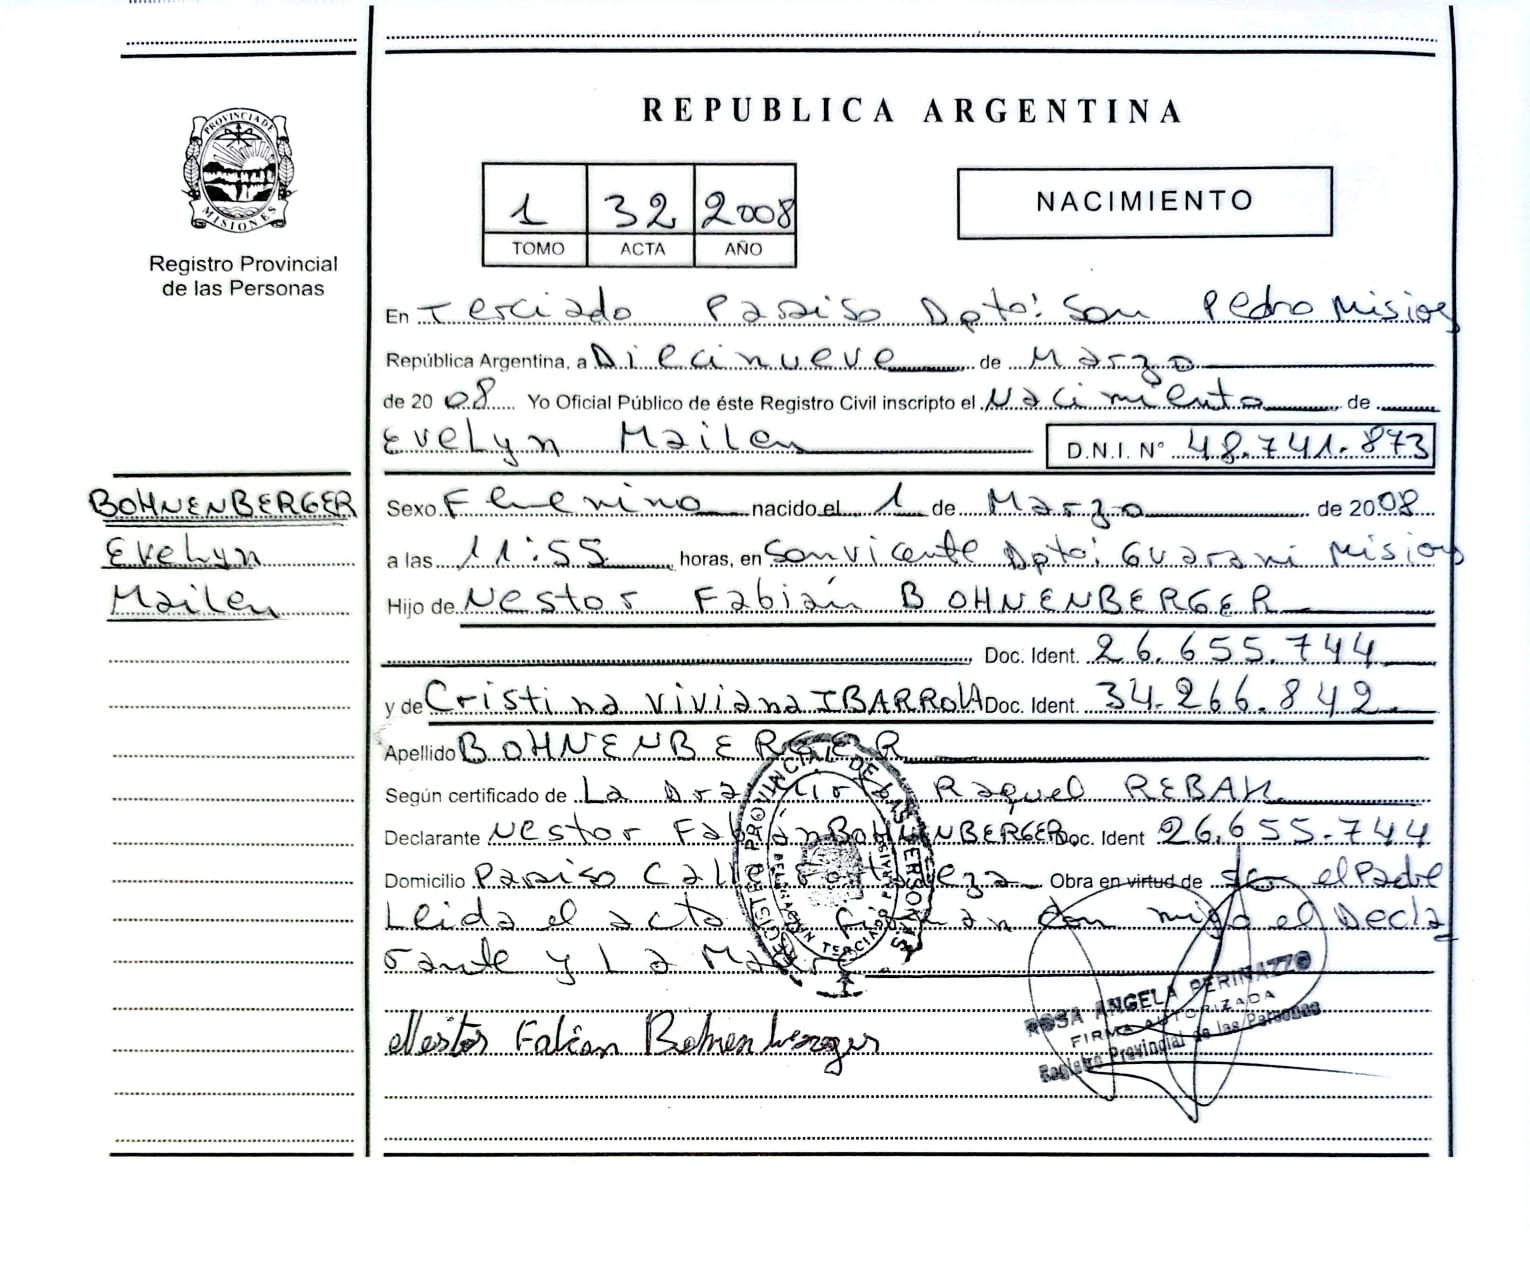 REPUBLICA ARGENTINA
PROVINCIA DE
MISIONES
Registro Provincial
de las Personas
1 32 2008
TOMO ACTA AÑO
NACIMIENTO
En Terciado Paraiso Dpto: San Pedro Misiones
República Argentina, a Diecinueve de Marzo
de 2008 Yo Oficial Público de éste Registro Civil inscripto el Nacimiento de
Evelyn Mailen D.N.I. N° 48.741.873
BOHNENBERGER
Evelyn
Mailen
Sexo Femenino nacido el 1 de Marzo de 2008
a las 11:55 horas, en San Vicente Dpto: Guarani Misiones
Hijo de Nestor Fabián BOHNENBERGER
Doc. Ident. 26.655.744
y de Cristina Viviana IBARROLA Doc. Ident. 34.266.842
Apellido BOHNENBERGER
Según certificado de La Dra Raquel REBAK
Declarante Nestor Fabian BOHNENBERGER Doc. Ident 26.655.744
Domicilio Paraiso Calle Obra en virtud de ser el Padre
Leida el acta Firman con migo el Decla
rante y La Madre
REGISTRO PROVINCIAL DE LAS PERSONAS
DELEGACION TERCIADO PARAISO
Nestor Fabian Bohnenberger
ROSA ANGELA PERINAZZO
FIRMA AUTORIZADA
Registro Provincial de las Personas